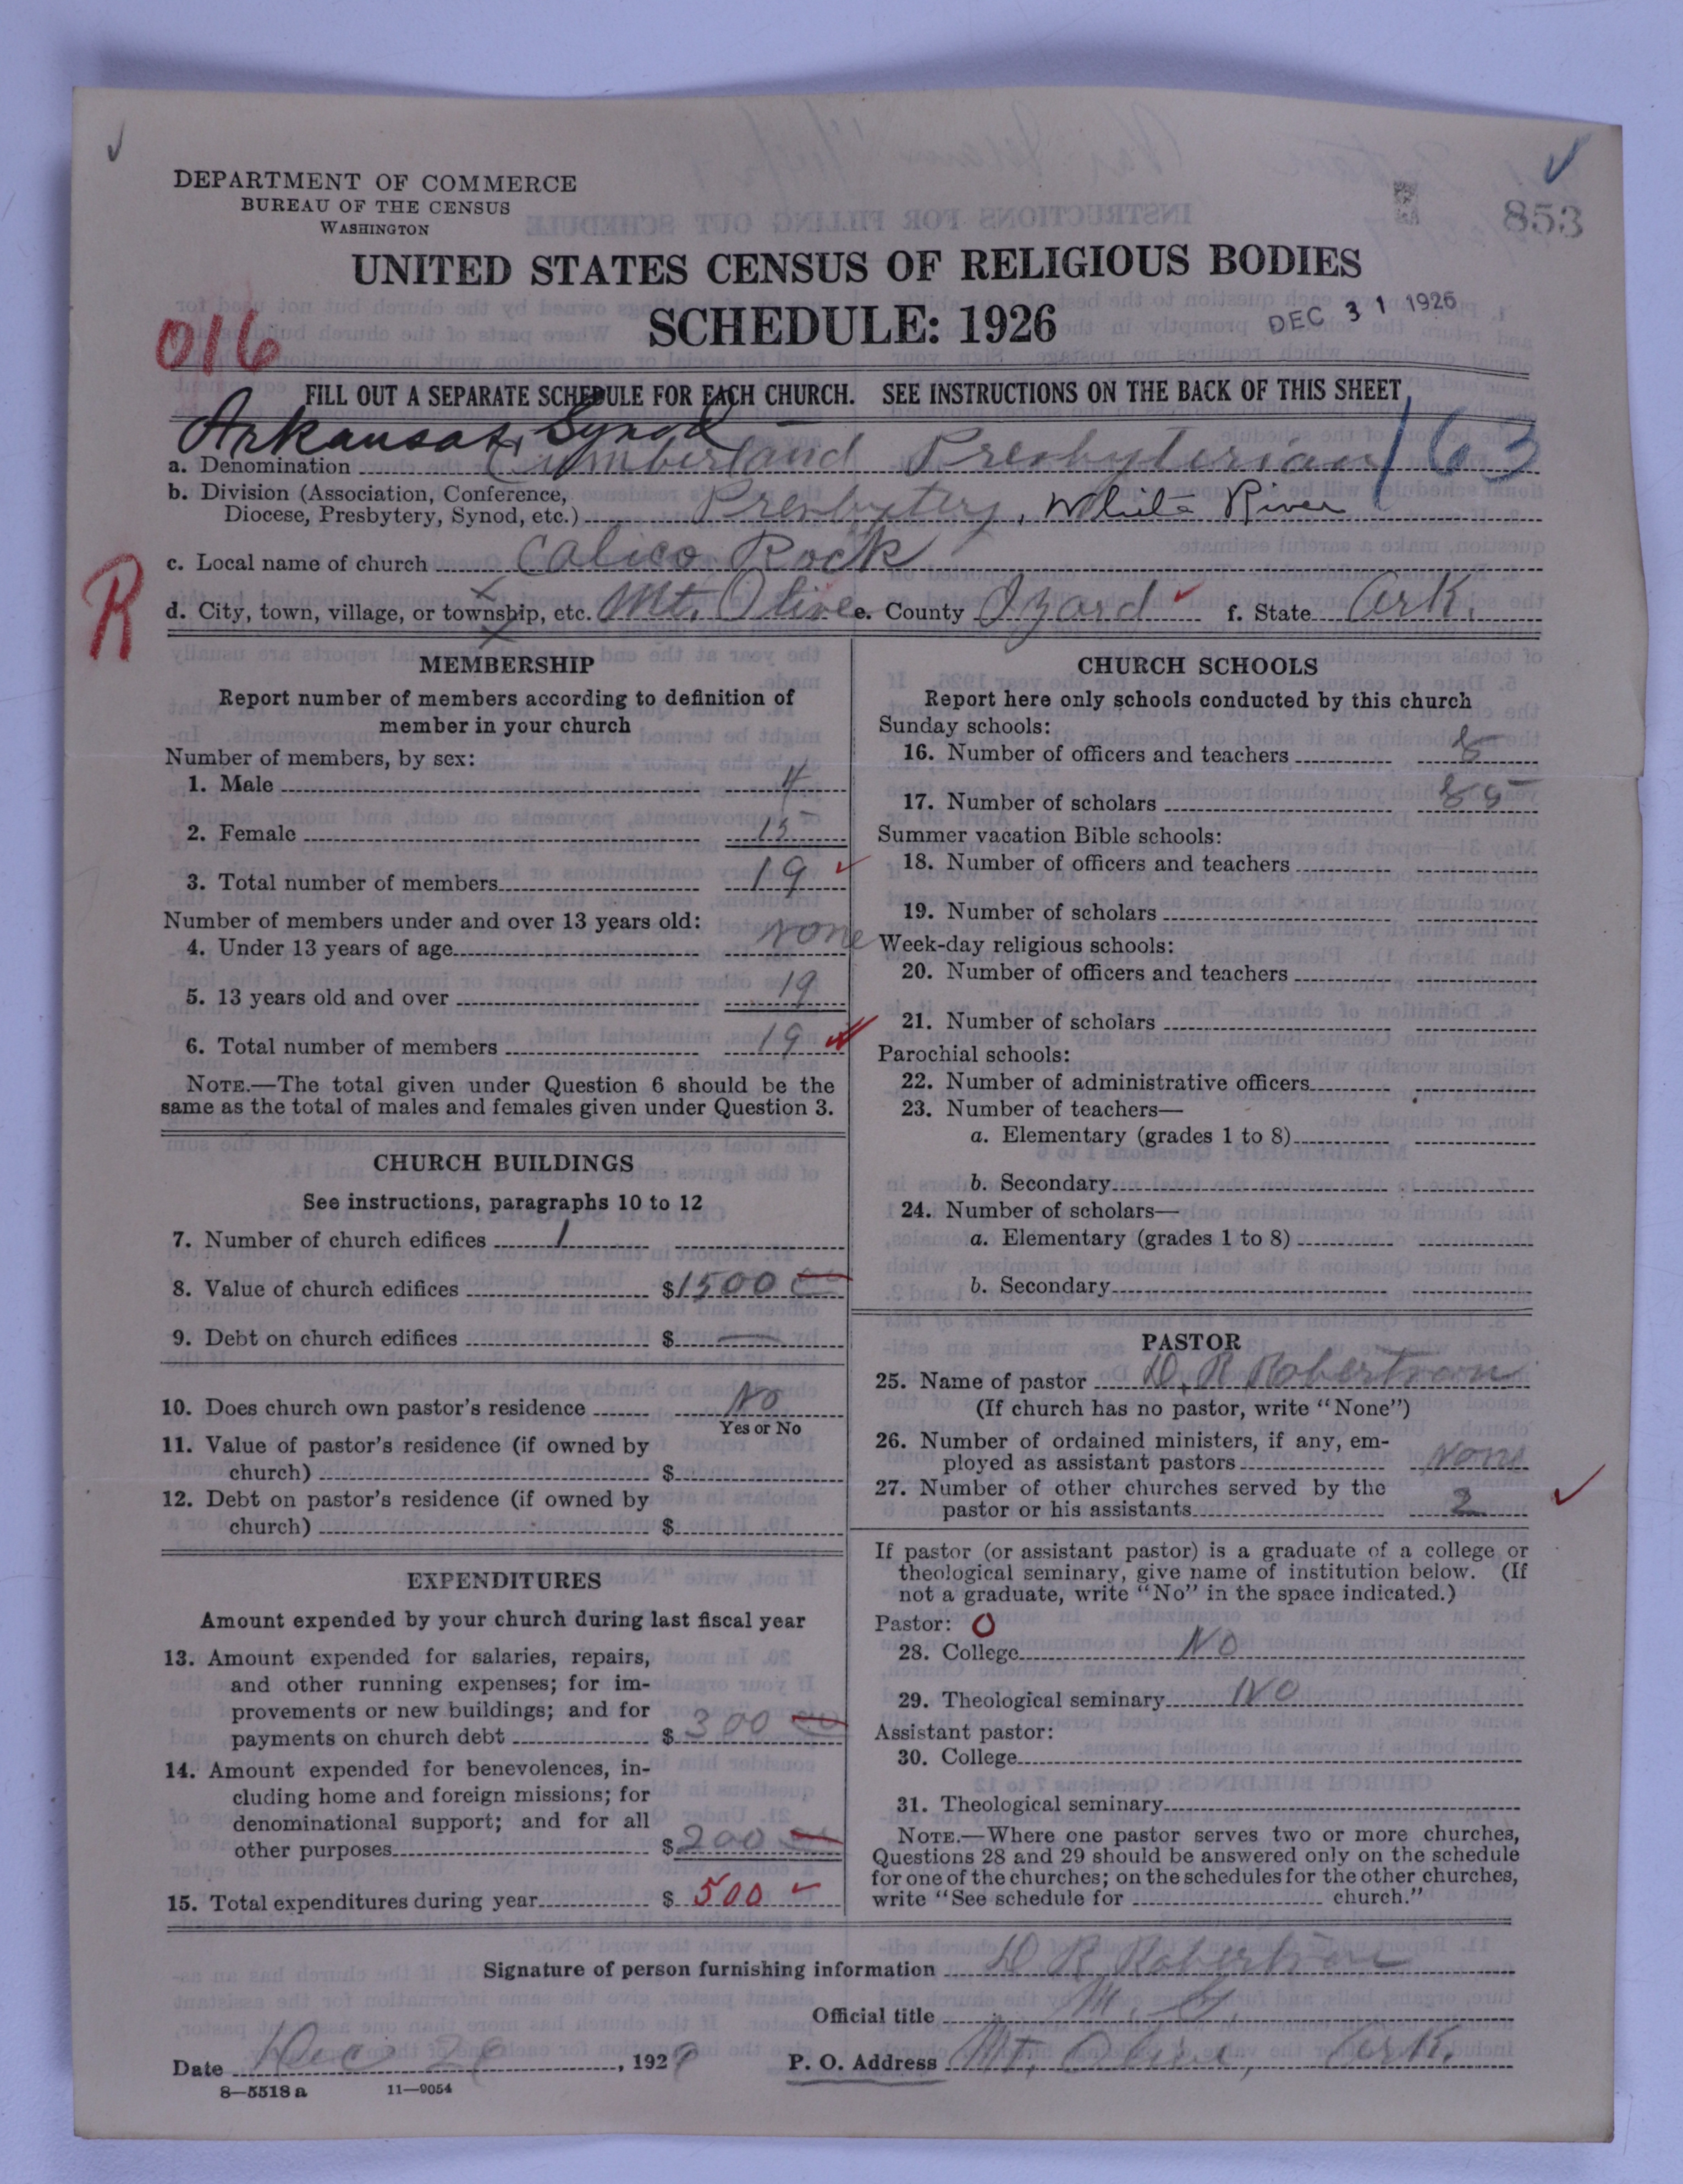 DEPARTMENT OF COMMERCE
BUREAU OF THE CENSUS
WASHINGTON
853
UNITED STATES CENSUS OF RELIGIOUS BODIES
SCHEDULE: 1926
DEC 31 1926
016
FILL OUT A SEPARATE SCHEDULE FOR EACH CHURCH. SEE INSTRUCTIONS ON THE BACK OF THIS SHEET
Arkansas, Synod
a. Denomination Cumberland Presbyterian 163
b. Division (Association, Conference,
Diocese, Presbytery, Synod, etc.) Presbytery, White River
c. Local name of church Calico Rock
R
d. City, town, village, or township, etc. Mt. Olive e. County Izard f. State Ark.
MEMBERSHIP
Report number of members according to definition of
member in your church
Number of members, by sex:
1. Male 4
2. Female 15
3. Total number of members 19
Number of members under and over 13 years old:
4. Under 13 years of age None
5. 13 years old and over 19
6. Total number of members 19
NOTE.—The total given under Question 6 should be the
same as the total of males and females given under Question 3.
CHURCH BUILDINGS
See instructions, paragraphs 10 to 12
7. Number of church edifices 1
8. Value of church edifices $1500 00
9. Debt on church edifices $ —
10. Does church own pastor's residence No
Yes or No
11. Value of pastor's residence (if owned by
church) $
12. Debt on pastor's residence (if owned by
church) $
EXPENDITURES
Amount expended by your church during last fiscal year
13. Amount expended for salaries, repairs,
and other running expenses; for im-
provements or new buildings; and for
payments on church debt $ 300 00
14. Amount expended for benevolences, in-
cluding home and foreign missions; for
denominational support; and for all
other purposes $ 200 00
15. Total expenditures during year $ 500
CHURCH SCHOOLS
Report here only schools conducted by this church
Sunday schools:
16. Number of officers and teachers 8
17. Number of scholars 85
Summer vacation Bible schools:
18. Number of officers and teachers
19. Number of scholars
Week-day religious schools:
20. Number of officers and teachers
21. Number of scholars
Parochial schools:
22. Number of administrative officers
23. Number of teachers—
a. Elementary (grades 1 to 8)
b. Secondary
24. Number of scholars—
a. Elementary (grades 1 to 8)
b. Secondary
PASTOR
25. Name of pastor D. R Robertson
(If church has no pastor, write "None")
26. Number of ordained ministers, if any, em-
ployed as assistant pastors None
27. Number of other churches served by the
pastor or his assistants 2
If pastor (or assistant pastor) is a graduate of a college or
theological seminary, give name of institution below. (If
not a graduate, write "No" in the space indicated.)
Pastor: O
28. College No
29. Theological seminary No
Assistant pastor:
30. College
31. Theological seminary
NOTE.—Where one pastor serves two or more churches,
Questions 28 and 29 should be answered only on the schedule
for one of the churches; on the schedules for the other churches,
write "See schedule for church."
Signature of person furnishing information D R Robertson
Official title
Date Dec 29, 192
P. O. Address Mt. Olive, Ark.
8—5518 a 11—9054